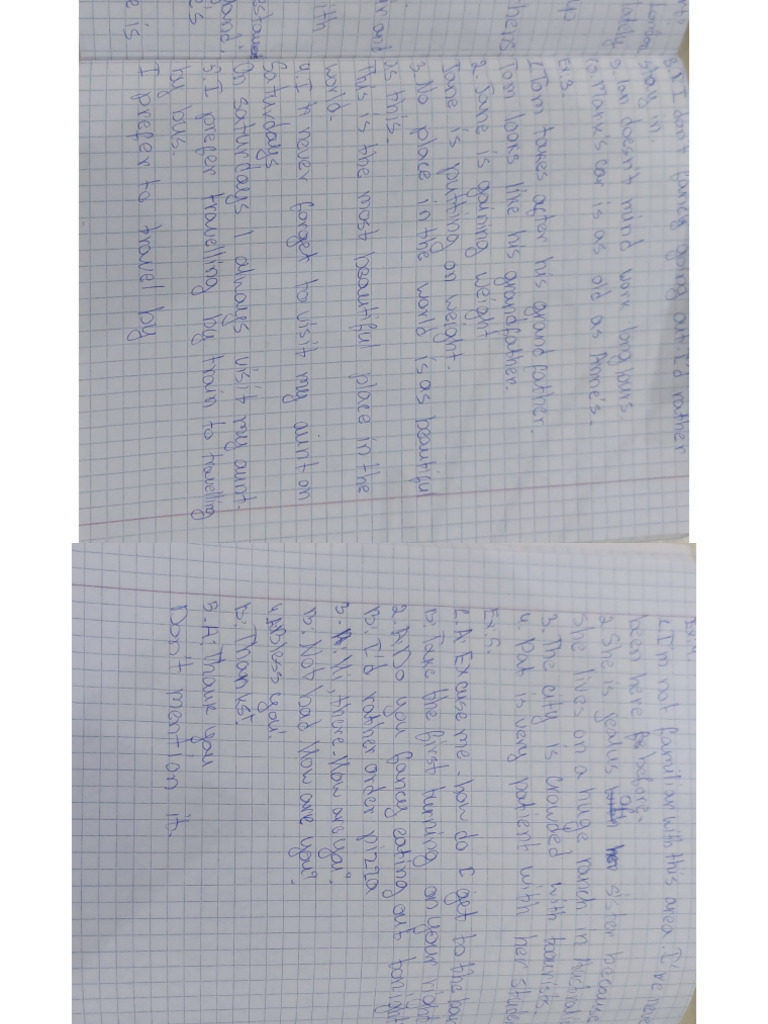 London
totally
up
there's
and
with
8.X I don't fancy going out. I'd rather
stay in.
9. Ian doesn't mind work long hours.
10. Mark's car is as old as Anne's.
Ex.3.
1. Tom takes after his grandfather.
Tom looks like his grandfather.
2. Jane is gaining weight
Jane is putting on weight.
3. No place in the world is as beautiful
as this.
This is the most beautiful place in the
world.
4. I never forget to visit my aunt on
Saturdays
On saturdays I always visit my aunt.
5. I prefer travelling by train to travelling
by bus.
I prefer to travel by
Ex.4.
1. I'm not familiar with this area. I've
been here before.
2. She is jealus of sister because
She lives on a huge ranch in
3. The city is crowded with tourists.
4. Pat is very patient with her
Ex.5.
1. A. Excuse me - how do I get to the
B: Take the first turning on your right
2. A: Do you fancy eating out tonight
B: I'd rather order pizza
3. A. Hi, there. How are you?
B: Not bad How are you?
4. A: Bless you!
B: Thanks!
5. A: Thank you
Don't mention it.